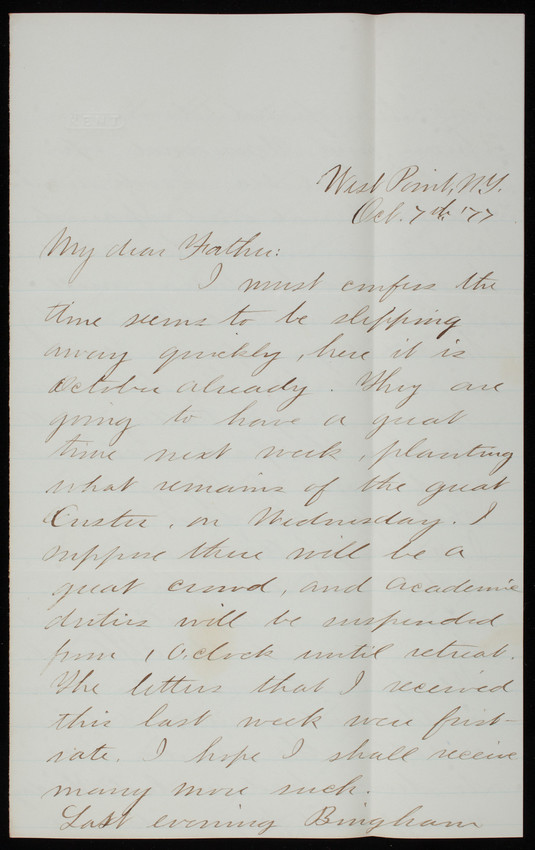 West Point, N.Y.
Oct. 7th, '77
My dear Father:
I must confess the
time seems to be slipping
away quickly, here it is
October already. They are
going to have a great
time next week, planting
what remains of the great
Custer, on Wednesday. I
suppose there will be a
great crowd, and academic
duties will be suspended
from 1 O'clock until retreat.
The letters that I received
this last week were first-
rate. I hope I shall receive
many more such.
Last evening Bingham